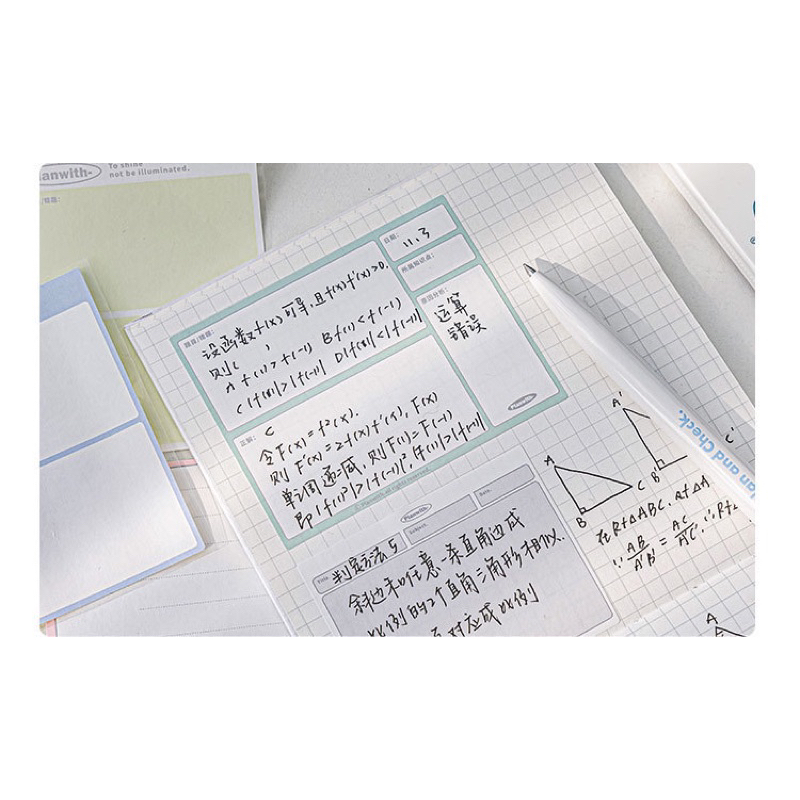 Planwith-
To shine
not be illuminated.
题目/错题:
设函数f(x)可导,且f(x)f'(x)>0,
则( )
A f(1)>f(-1) B f(1)<f(-1)
C |f(1)|>|f(-1)| D |f(1)|<|f(-1)|
日期:
11.3
所属知识点:
原因分析:
运算
错误
Planwith-
正解:
C
令F(x)=f²(x).
则 F'(x)=2f(x)f'(x), F(x)
单调递减, 则F(1)=F(-1)
即|f(1)²|>|f(-1)|²,|f(1)|>|f(-1)|
© Planwith. all rights reserved.
Planwith-
Title.
判定方法5
Subject.
Date.
斜边和任意一条直角边成
比例的2个直角三角形相似.
对应成比例
A
B
C
A'
B'
C'
在Rt△ABC.Rt△A
∵ AB/A'B' = AC/A'C' ∴Rt
A
lan and Check.